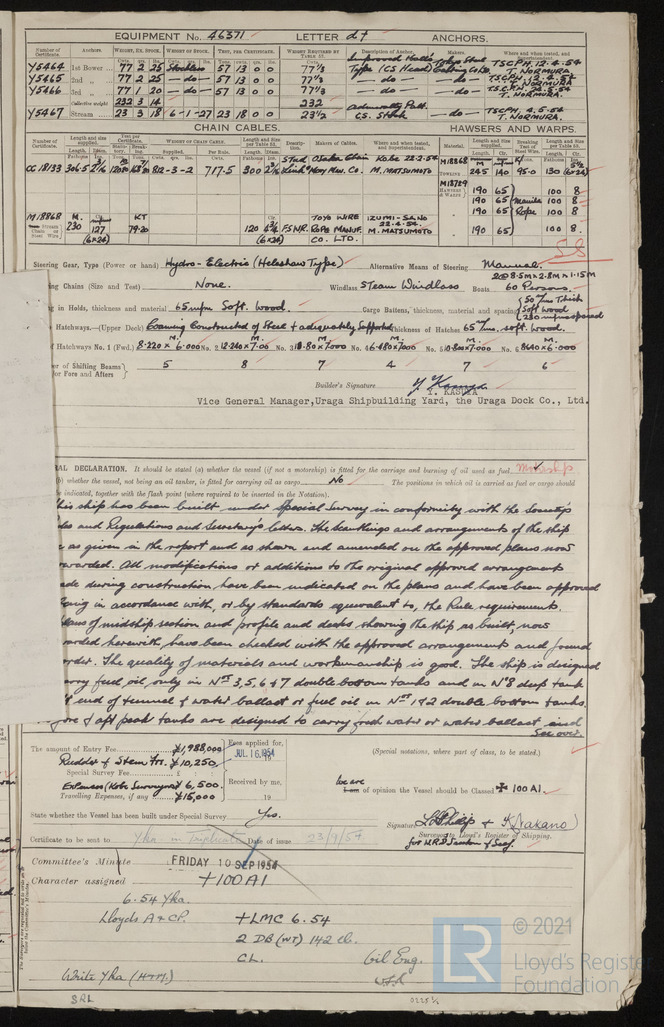 EQUIPMENT No. 46371 LETTER d† ANCHORS.
Number of Certificate. Anchors. WEIGHT, EX. STOCK. WEIGHT OF STOCK. TEST, PER CERTIFICATE. WEIGHT REQUIRED BY TABLE 53. Description of Anchor. Makers. Where and when tested, and Superintendent.
Y5464 1st Bower 77 2 25 Stockless 57 13 0 0 77½ Improved Hall's Type (CS Head) TSCPH. 12.4.54 T. NORMURA.
Y5465 2nd " 77 2 25 —do— 57 13 0 0 77½ —do— —do— TSCPH. 12.4.54 T. NORMURA.
Y5466 3rd " 77 1 20 —do— 57 13 0 0 77½ —do— —do— T. NORMURA.
Collective weight 232 3 14 232
Y5467 Stream 23 3 18 6-1-27 23 18 0 0 23½ Admiralty Patt. CS. Stock —do— TSCPH. 4.5.54 T. NORMURA.
CHAIN CABLES. HAWSERS AND WARPS.
CC 18133 306.5 2 3/16 812-3-2 717.5 300 2 3/16 Stud Link Osaka Chain Kobe 22.2.54 M. MATSUMOTO
M18868 245 140 95.0 130 (6x24)
M18729 190 65 100 8
190 65 Manila 100 8
190 65 Rope 100 8
M18868 230 127 (6x24) KT 79.20 120 (6x24) F.S.W.R. TOYO WIRE ROPE MANUF. CO. LTD. IZUMI-SANO 22.4.54 M. MATSUMOTO
190 65 100 8
Steering Gear, Type (Power or hand) Hydro-Electric (Heleshaw Type) Alternative Means of Steering Manual.
ing Chains (Size and Test) None. Windlass Steam Windlass Boats 2@8.5m×2.8m×1.15m 60 Persons.
ing in Holds, thickness and material 65 m/m Soft. wood. Cargo Battens, thickness, material and spacing 50 m/m Thick Soft wood 230 m/m spaced
Hatchways.—(Upper Deck) Coaming Constructed of Steel & adequately Supported thickness of Hatches 65 m/m. soft. wood.
f Hatchways No. 1 (Fwd.) 8.220 × 6.000 No. 2 12.240×7.00 No. 3 10.80×7.000 No. 4 6.480×7.000 No. 5 10.800×7.000 No. 6 8.640×6.000
er of Shifting Beams or Fore and Afters 5 8 7 4 7 6
Builder's Signature
Y. KASUYA
Vice General Manager, Uraga Shipbuilding Yard, the Uraga Dock Co., Ltd.
RAL DECLARATION. It should be stated (a) whether the vessel (if not a motorship) is fitted for the carriage and burning of oil used as fuel Motorship
b) whether the vessel, not being an oil tanker, is fitted for carrying oil as cargo No The positions in which oil is carried as fuel or cargo should
be indicated, together with the flash point (where required to be inserted in the Notation).
his ship has been built under Special Survey in conformity with the Society's
les and Regulations and Secretary's letters. The scantlings and arrangements of the ship
as given in the report and as shown and amended on the approved plans now
warded. All modifications or additions to the original approved arrangement
ade during construction have been indicated on the plans and have been approved
being in accordance with, or by standards equivalent to, the Rule requirements.
lans of midship section and profile and decks showing the ship as built, now
arded herewith, have been checked with the approved arrangement and found
rder. The quality of materials and workmanship is good. The ship is designed
arry fuel oil, only in Nos 3, 5, 6 & 7 double bottom tanks and in No 8 deep tank
end of tunnel & water ballast or fuel oil in Nos 1 & 2 double bottom tanks.
ore & aft peak tanks are designed to carry fresh water or water ballast and
See over.
The amount of Entry Fee ¥1,988,000 Fees applied for, JUL 16 1954
Rudder & Stem Frs. ¥10,250
Special Survey Fee
Expenses (Kobe Surveyors) ¥6,500 Received by me,
Travelling Expenses, if any ¥15,000 19
(Special notations, where part of class, to be stated.)
We are
I am of opinion the Vessel should be Classed ✠ 100 A1
State whether the Vessel has been built under Special Survey Yes.
Signature & K. Nakano
Surveyor to Lloyd's Register of Shipping.
Certificate to be sent to Yka - in Triplicate Date of issue 23/9/54
Committee's Minute FRIDAY 10 SEP 1954
Character assigned +100A1
6.54 Yka.
Lloyds A & CP. +LMC 6.54
2 DB (WT) 142 lb.
CL. Oil Eng.
Write Yka (H+M)
SRL
0225½
© 2021
LR
Lloyd's Register
Foundation